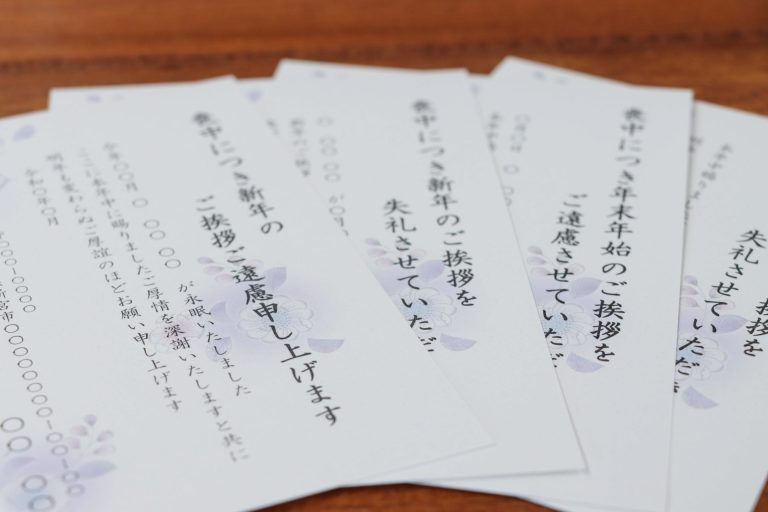 喪中につき新年の
ご挨拶ご遠慮申し上げます
今年〇〇月 〇 〇〇〇〇 が永眠いたしました
ここに本年中に賜りましたご厚情を深謝いたしますと共に
明年も変わらぬご厚誼のほどお願い申し上げます
令和〇年〇月
喪中につき新年のご挨拶を
失礼させていただ
喪中につき年末年始のご挨拶を
ご遠慮させていただ
挨拶を
失礼させていただき